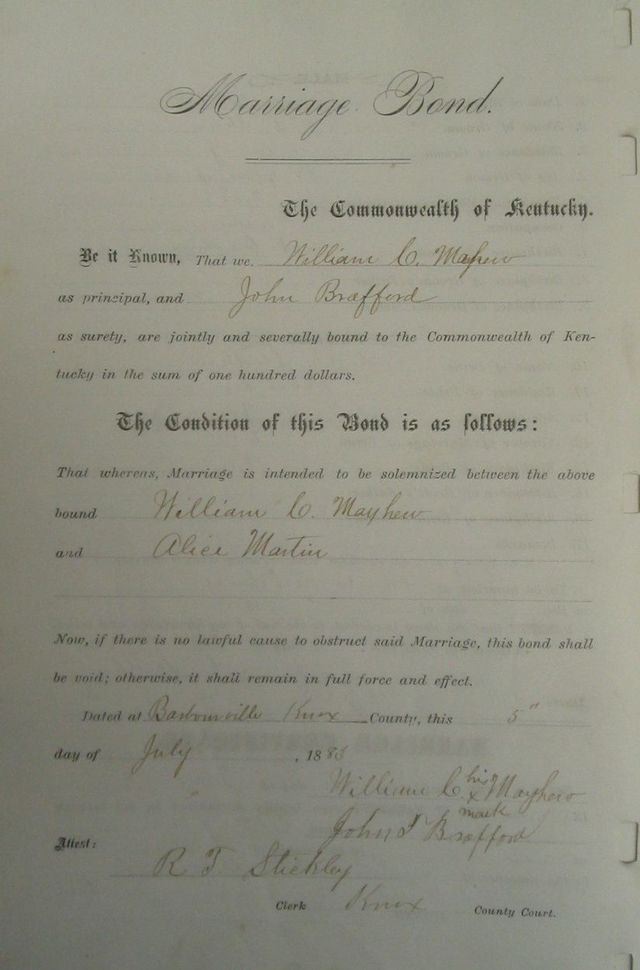 Marriage Bond.
The Commonwealth of Kentucky.
Be it Known, That we, William C. Mayhew
as principal, and John Brafford
as surety, are jointly and severally bound to the Commonwealth of Ken-
tucky in the sum of one hundred dollars.
The Condition of this Bond is as follows:
That whereas, Marriage is intended to be solemnized between the above
bound William C. Mayhew
and Alice Martin
Now, if there is no lawful cause to obstruct said Marriage, this bond shall
be void; otherwise, it shall remain in full force and effect.
Dated at Barbourville Knox County, this 5"
day of July, 1883
William C his x Mayhew
mark
John F Brafford
Attest:
R F Stickley
Clerk Knox County Court.